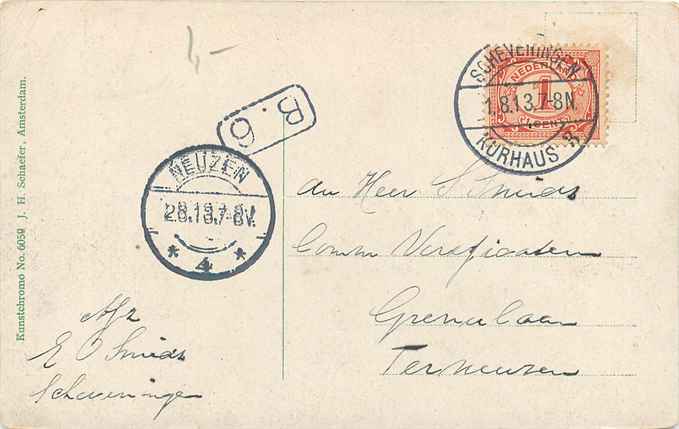 1,-
B. 6
SCHEVENINGEN
1.8.13.7-8N.
KURHAUS
NEDERLAND
1
CENT
NEUZEN
2.8.13.7-8V.
* 4 *
Kunstchromo No. 6059 J. H. Schaefer, Amsterdam.
Aan Heer S Smids
Comm
Grenulaan
Terneuzen
Afz
E Smids
Scheveningen